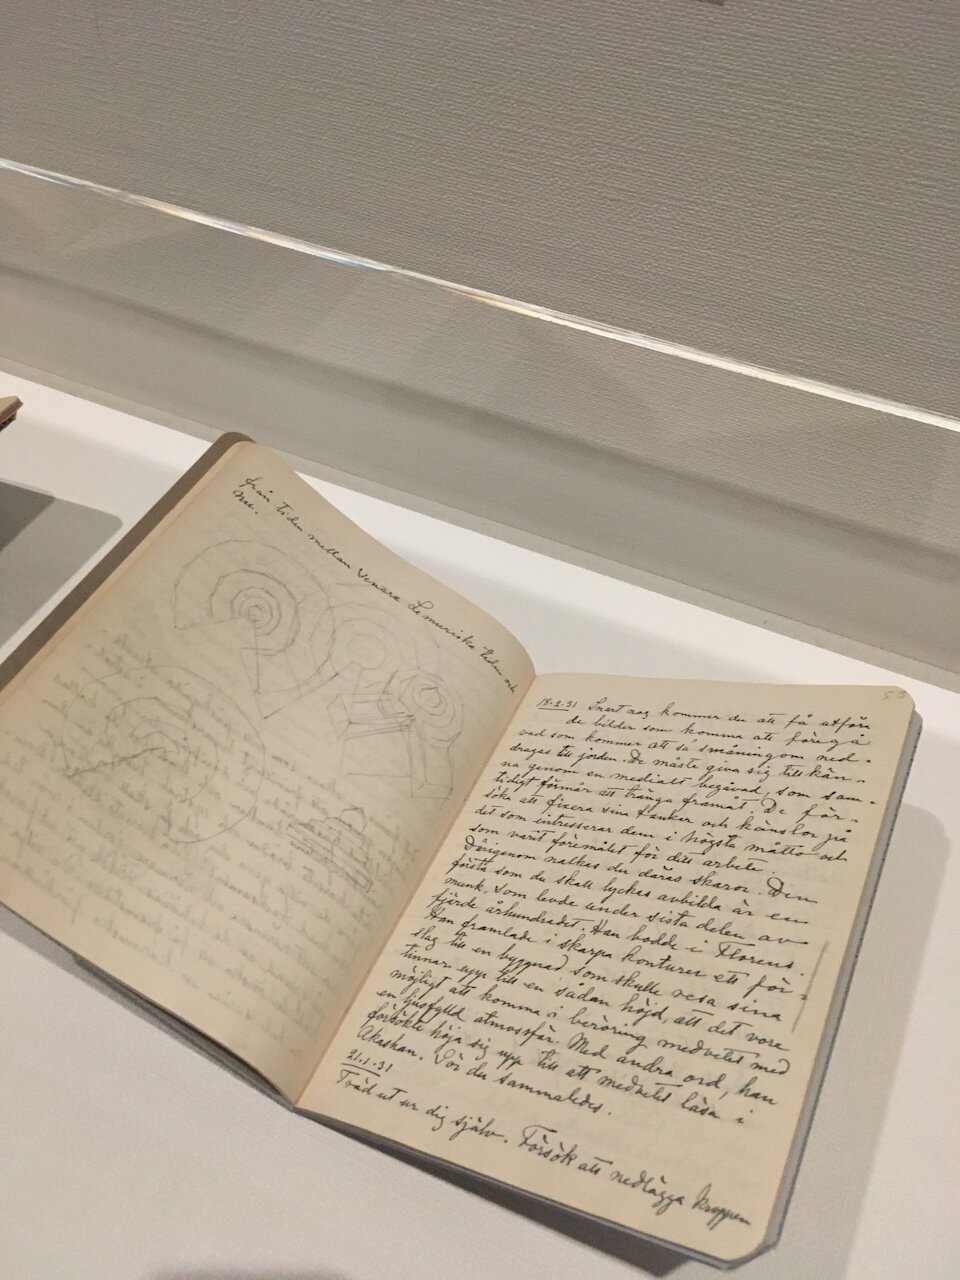 från tiden mellan senare Lemuriska tiden och
nu.
53
18.2.31 Snart nog kommer du att få utföra
de bilder som komma att föregå
vad som kommer att så småningom ned-
dragas till jorden. De måste giva sig till kän-
na genom en medialt begåvad, som sam-
tidigt förmår att tränga framåt. De för-
söka att fixera sina tankar och känslor på
det som intresserar dem i högsta mått och
som varit föremålet för ditt arbete.
Därigenom nalkas du deras skaror. Den
första som du skall lyckas avbilda är en
munk, som levde under sista delen av
fjärde århundradet. Han bodde i Florens.
Han framlade i skarpa konturer ett för-
slag till en byggnad, som skulle resa sina
tinnar upp till en sådan höjd, att det vore
möjligt att komma i beröring medvetet med
en ljusfylld atmosfär. Med andra ord, han
försökte höja sig upp till att medvetet läsa i
Akashan. Gör du sammaledes.
21.1.31
Träd ut ur dig själv. Försök att nedlägga kroppen